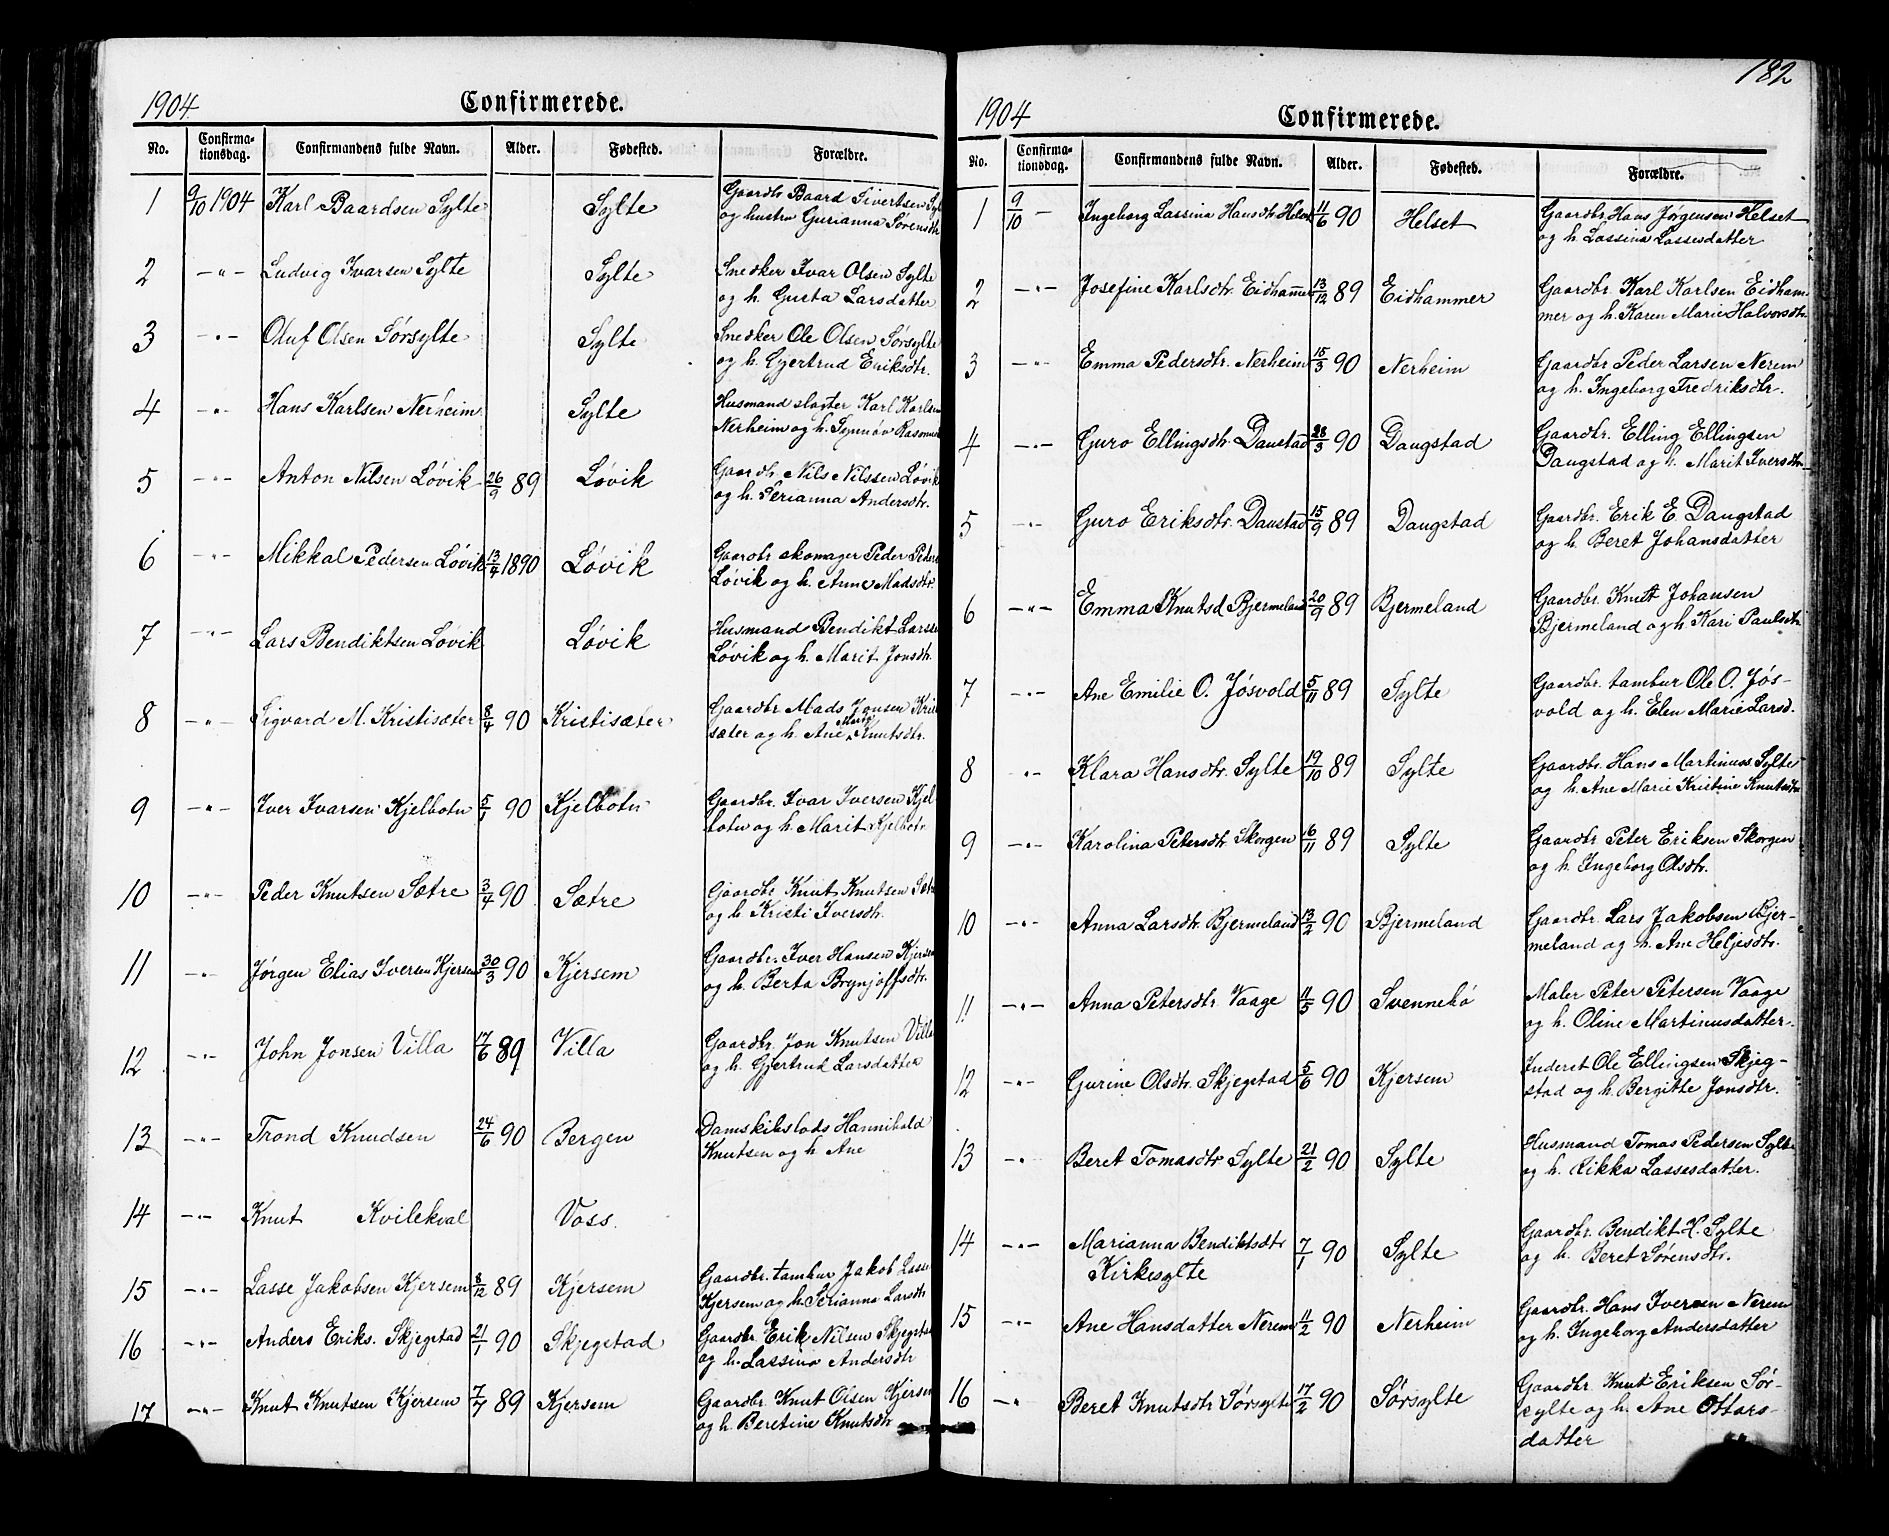 1904
Confirmerede.
No. Confirma-tionsdag. Confirmandens fulde Navn. Alder. Fødested. Forældre.
1 9/10 1904 Karl Baardsen Sylte Sylte Gaardbr Baard Sivertsen
og hustru Gurianna Sørensdtr
2 -"- Ludvig Ivarsen Sylte Sylte Snedker Ivar Olsen Sylte
og h. Gusta Larsdatter
3 -"- Oluf Olsen Sørsylte Sylte Snedker Ole Olsen Sørsylte
og h. Gjertrud Eriksdtr.
4 -"- Hans Karlsen Nerheim Sylte Husmand slagter Karl Karlsen
Nerheim og h. Synnøv
5 -"- Anton Nilsen Løvik 26/9 89 Løvik Gaardb. Nils Nilssen Løvik
og h. Serianna Andersdtr.
6 -"- Mikkal Pedersen Løvik 13/4 1890 Løvik Gaardbr skomager Peder
Løvik og h. Anne Madsdtr.
7 -"- Lars Bendiktsen Løvik Løvik Husmand Bendikt Larsse
Løvik og h. Marit Jonsdtr.
8 -"- Sigvard M. Kristisæter 8/4 90 Kristisæter Gaardbr Mads Jonsen Kristi
sæter og h. Ane Marie Knutsdtr.
9 -"- Iver Ivarsen Kjelbotn 5/1 90 Kjelbotn Gaardbr. Ivar Iversen Kjel
botn og h. Marit Kjelbotn
10 -"- Peder Knutsen Sætre 3/4 90 Sætre Gaardbr. Knut Knutsen Sætre
og h. Kristi Iversdtr.
11 -"- Jørgen Elias Iversen Kjersem 30/3 90 Kjersem Gaardbr. Iver Hansen Kjersem
og h. Berta Brynjolfsdtr.
12 -"- John Jonsen Villa 17/6 89 Villa Gaardbr. Jon Knutsen Villa
og h. Gjertrud Larsdatter
13 -"- Trond Knudsen 24/6 90 Bergen Damskibslods Hannibald
Knutsen og h Ane
14 -"- Knut Kvilekval Voss.
15 -"- Lasse Jakobsen Kjersem 8/12 89 Kjersem Gaardbr. tambur Jakob Lasse
Kjersem og h. Serianna Larsdtr
16 -"- Anders Eriks. Skjegstad 21/1 90 Skjegstad Gaardbr. Erik Nilsen Skjegstad
og h. Lassina Andersdtr
17 -"- Knut Knutsen Kjersem 7/7 89 Kjersem Gaardbr. Knut Olsen Kjersem
og h. Beretine Knutsdtr
182
1904
Confirmerede.
No. Confirma-tionsdag. Confirmandens fulde Navn. Alder. Fødested. Forældre.
1 9/10 - Ingeborg Lassina Hansdtr Helset 11/6 90 Helset Gaardbr. Hans Jørgensen Helset
og h. Lassina Lassesdatter
2 -"- Josefine Karlsdtr. Eidhammer 13/12 89 Eidhammer Gaardbr. Karl Karlsen Eidham-
mer og h. Karen Marie Halvorsdtr.
3 -"- Emma Pedersdtr. Nerheim 15/3 90 Nerheim Gaardbr Peder Larsen Nerem
og h. Ingeborg Fredriksdtr.
4 -"- Guro Ellingsdtr. Daustad 28/3 90 Daugstad Gaardbr. Elling Ellingsen
Daugstad og h. Marit Iversdtr.
5 -"- Guro Eriksdtr. Daustad 15/9 89 Daugstad Gaardbr. Erik E. Daugstad
og h. Beret Johansdatter
6 -"- Emma Knutsd Bjermeland 20/9 89 Bjermeland Gaardbr. Knut Johansen
Bjermeland og h. Kari Paulsdtr
7 -"- Ane Emilie O. Jøsvold 5/11 89 Sylte Gaardbr. tambur Ole O. Jøs-
vold og h. Elen Marie Larsd.
8 -"- Klara Hansdtr. Sylte 19/10 89 Sylte Gaardbr. Hans Martinuss. Sylte
og h. Ane Marie Kristine Knutsdtr
9 -"- Karolina Petersdtr Skorgen 16/11 89 Sylte Gaardbr Peter Eriksen Skorgen
og h. Ingeborg Olsdtr.
10 -"- Anna Larsdtr. Bjermeland 13/2 90 Bjermeland Gaardbr. Lars Jakobsen Bjer-
meland og h. Ane Heljesdtr.
11 -"- Anna Petersdtr. Vaage 11/5 90 Svennebø Maler Peter Petersen Vaage
og h. Oline Martinusdatter.
12 -"- Gurine Olsdtr. Skjegstad 5/6 90 Kjersem Inderst Ole Ellingsen Skjeg-
stad og h. Bergitte Jonsdtr.
13 -"- Beret Tomasdtr Sylte 21/2 90 Sylte Husmand Tomas Pedersen Sylte
og h. Rikka Lassesdatter.
14 -"- Marianna Bendiktsdtr
Kirkesylte 7/1 90 Sylte Gaardbr. Bendikt H. Sylte
og h. Beret Sørensdtr.
15 -"- Ane Hansdatter Nerem 11/2 90 Nerheim Gaardbr. Hans Iversen Nerem
og h. Ingeborg Andersdatter
16 -"- Beret Knutsdtr Sørsylte 17/2 90 Sørsylte Gaardbr. Knut Eriksen Sør-
sylte og h. Ane Ottars-
datter